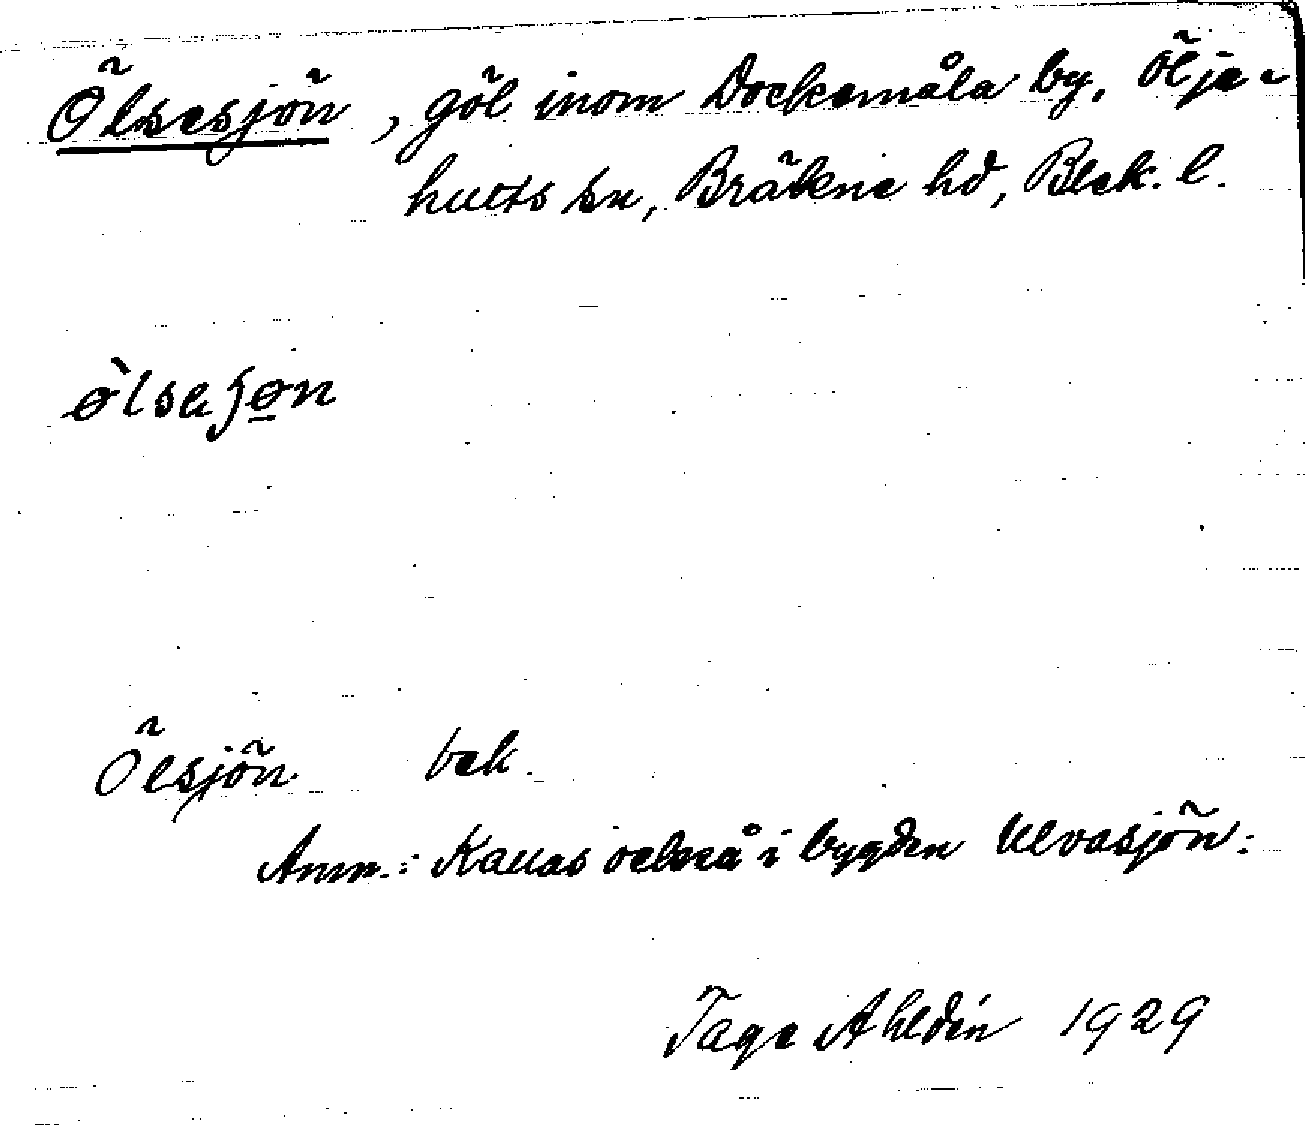 Ölsesjön, göl inom Dockemåla by, Ölje-
hults sn, Bräkne hd, Blek. l.
ø̀lsaʃøn
Ölsjön bek.
Anm.: Kallas också i bygden Ulvasjön.
Tage Ahldén 1929